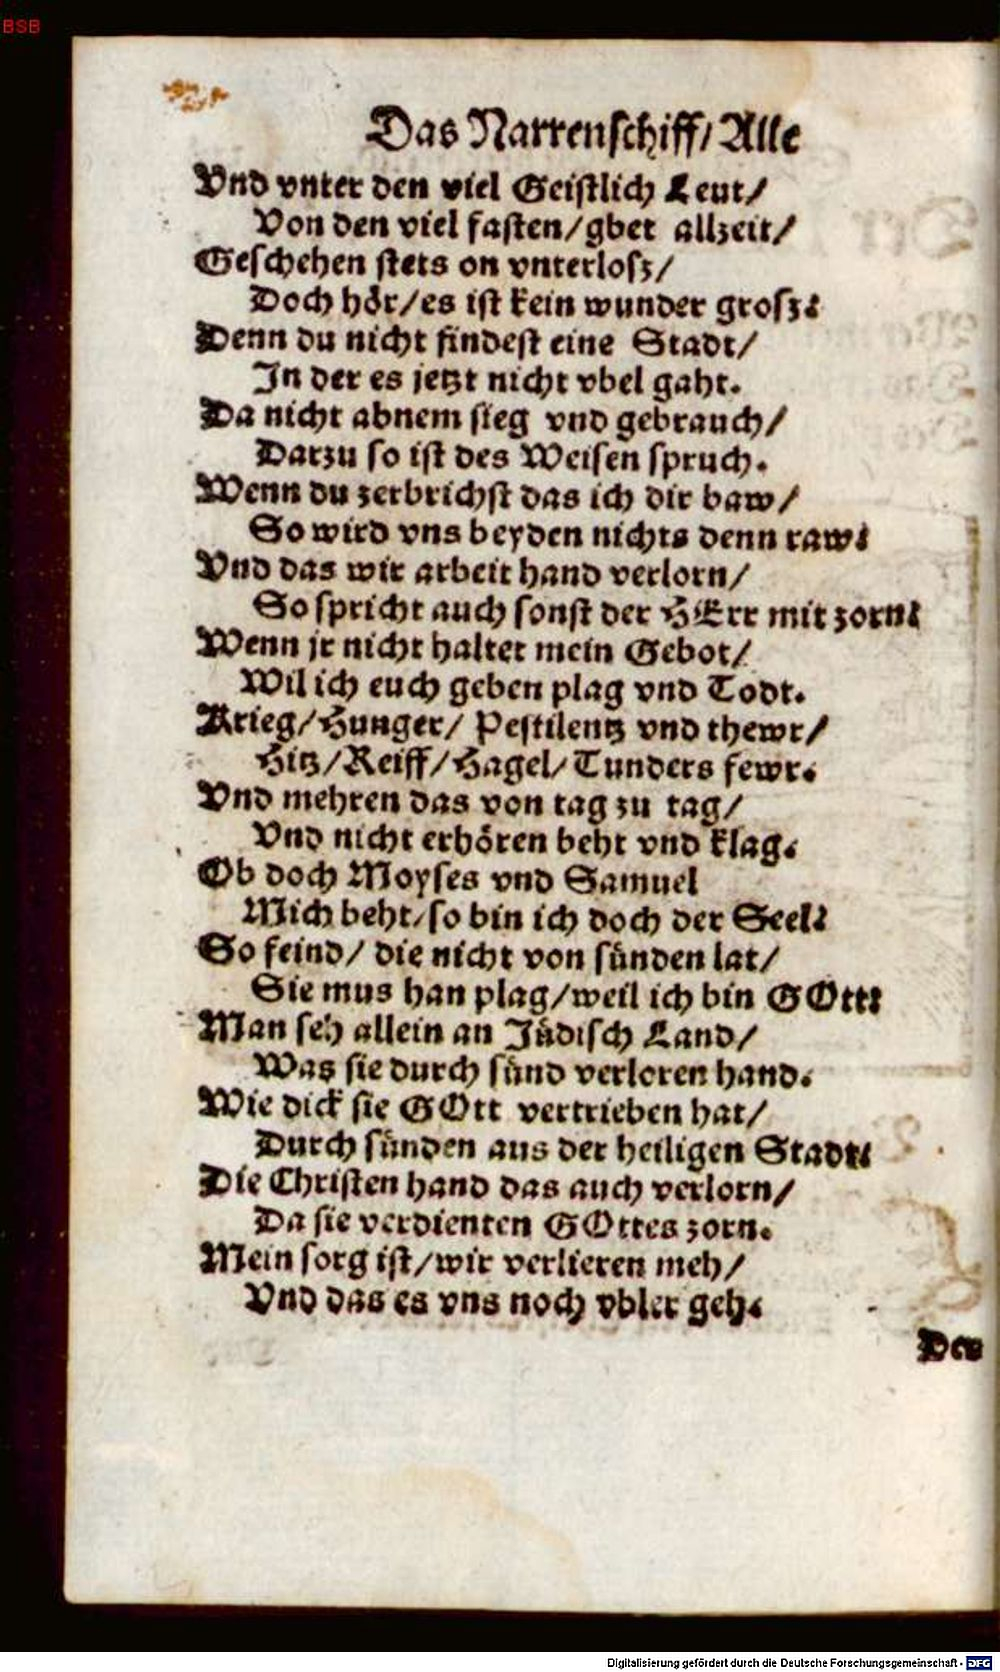 BSB
Das Narrenschiff/ Alle
Vnd vnter den viel Geistlich Leut/
Von den viel fasten/gbet allzeit/
Geschehen stets on vnterlosz/
Doch hör/es ist kein wunder grosz:
Denn du nicht findest eine Stadt/
In der es jetzt nicht vbel gaht.
Da nicht abnem sieg vnd gebrauch/
Darzu so ist des Weisen spruch.
Wenn du zerbrichst das ich dir baw/
So wird vns beyden nichts denn raw:
Vnd das wir arbeit hand verlorn/
So spricht auch sonst der HErr mit zorn:
Wenn jr nicht haltet mein Gebot/
Wil ich euch geben plag vnd Todt.
Krieg/Hunger/ Pestilentz vnd thewr/
Hitz/Reiff/Hagel/Tunders fewr.
Vnd mehren das von tag zu tag/
Vnd nicht erhören beht vnd klag.
Ob doch Moyses vnd Samuel
Mich beht/so bin ich doch der Seel:
So feind/ die nicht von sünden lat/
Sie mus han plag/weil ich bin GOtt:
Man seh allein an Jüdisch Land/
Was sie durch sünd verloren hand.
Wie dick sie GOtt vertrieben hat/
Durch sünden aus der heiligen Stadt:
Die Christen hand das auch verlorn/
Da sie verdienten GOttes zorn.
Mein sorg ist/wir verlieren meh/
Vnd das es vns noch vbler geh.
Den
Digitalisierung gefördert durch die Deutsche Forschungsgemeinschaft - DFG